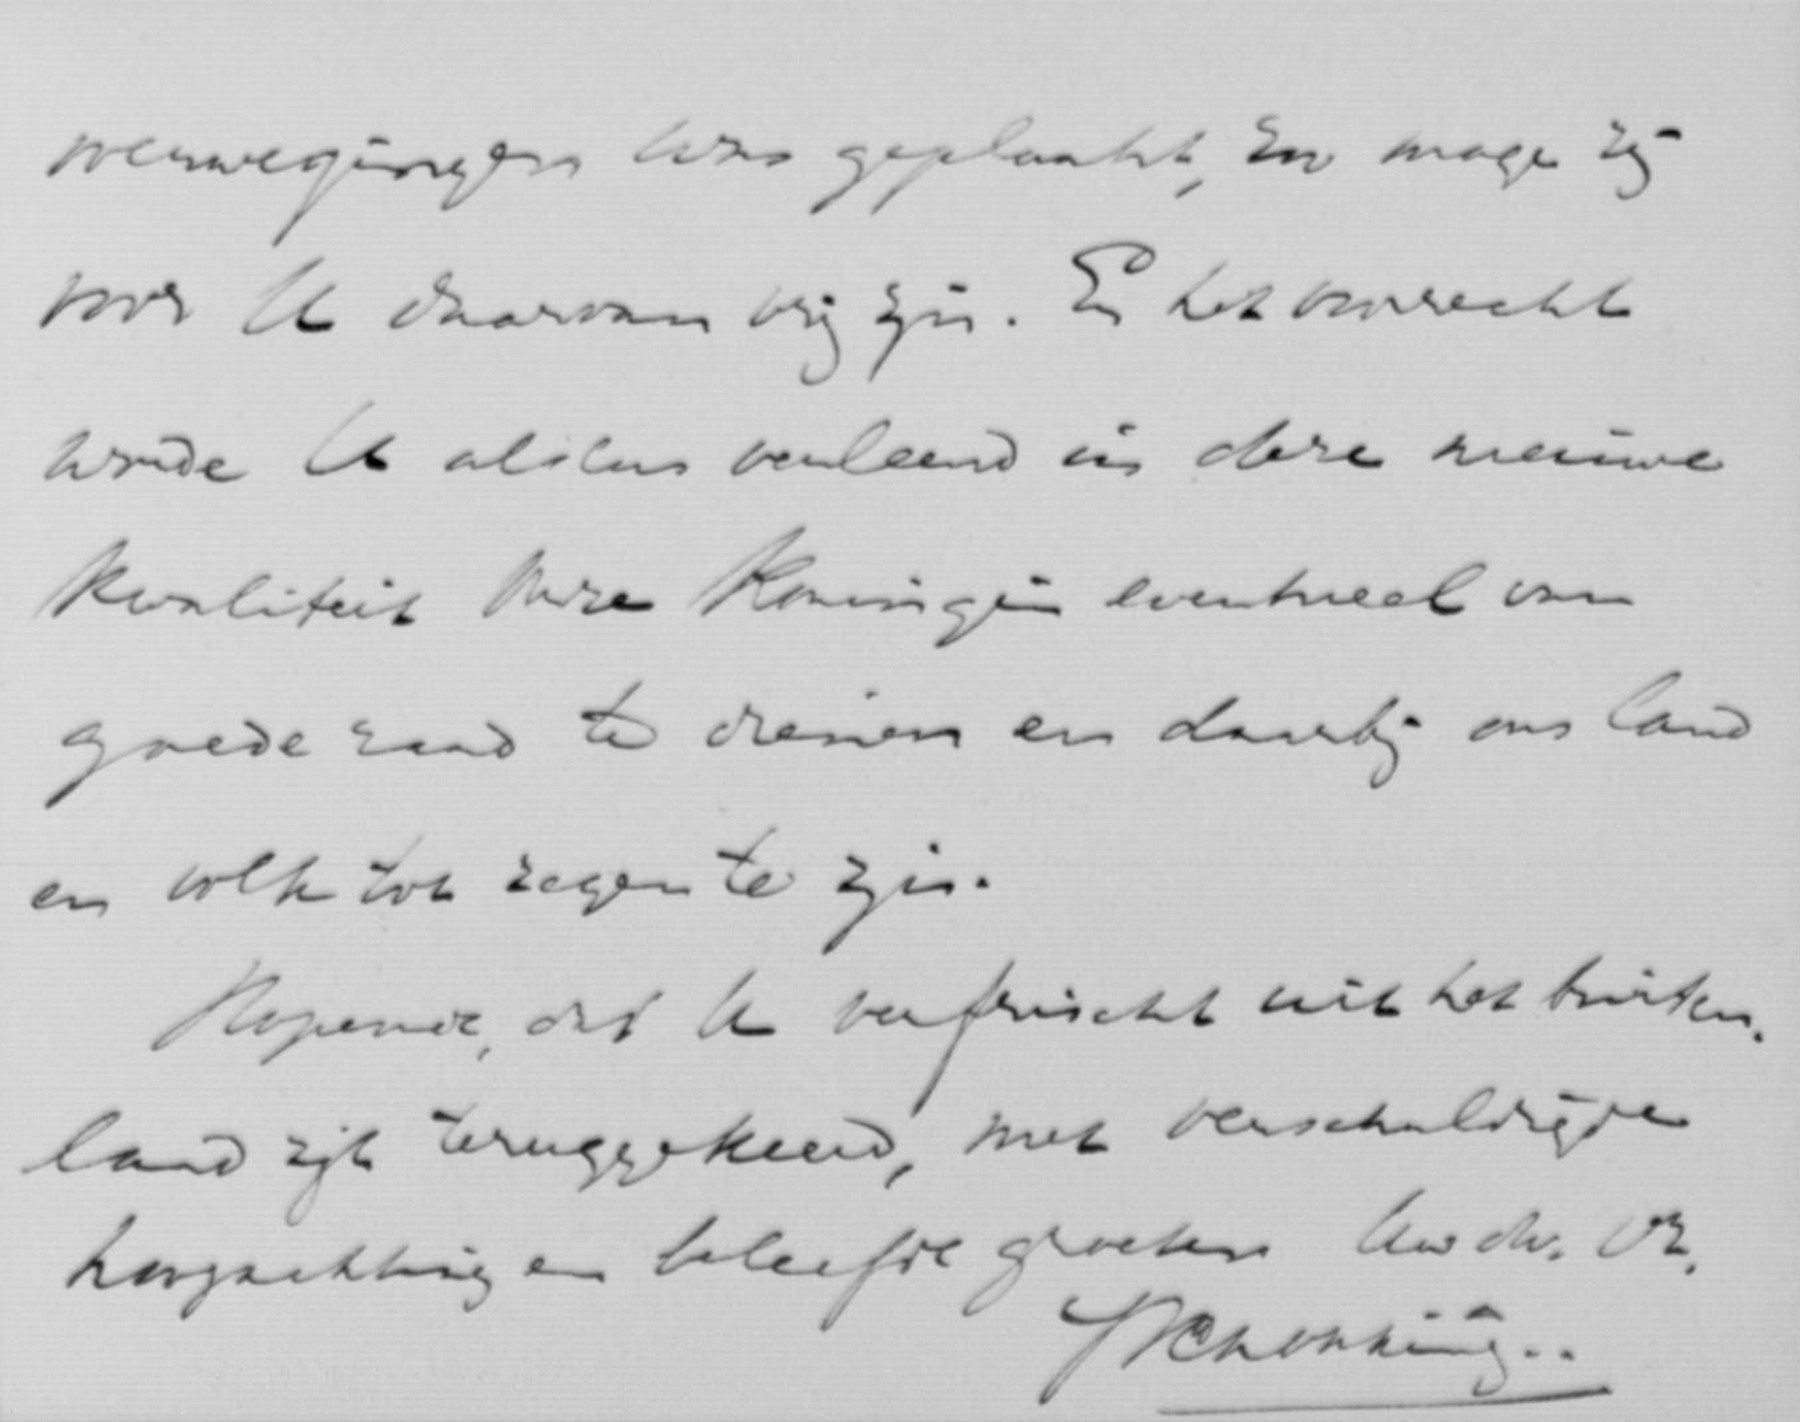 overwegingen was geplaatst, zoo moge zij
voor U daarvan vrij zijn. En het voorrecht
worde U alsdan verleend in deze nieuwe
kwaliteit Onze Koningin eventueel van
goede raad te dienen en daarbij ons land
en volk tot zegen te zijn.
Hopende, dat U verfrischt uit het buiten-
land zijt teruggekeerd, met verschuldigde
hoogachting en beleefde groeten Uw dw. dr.